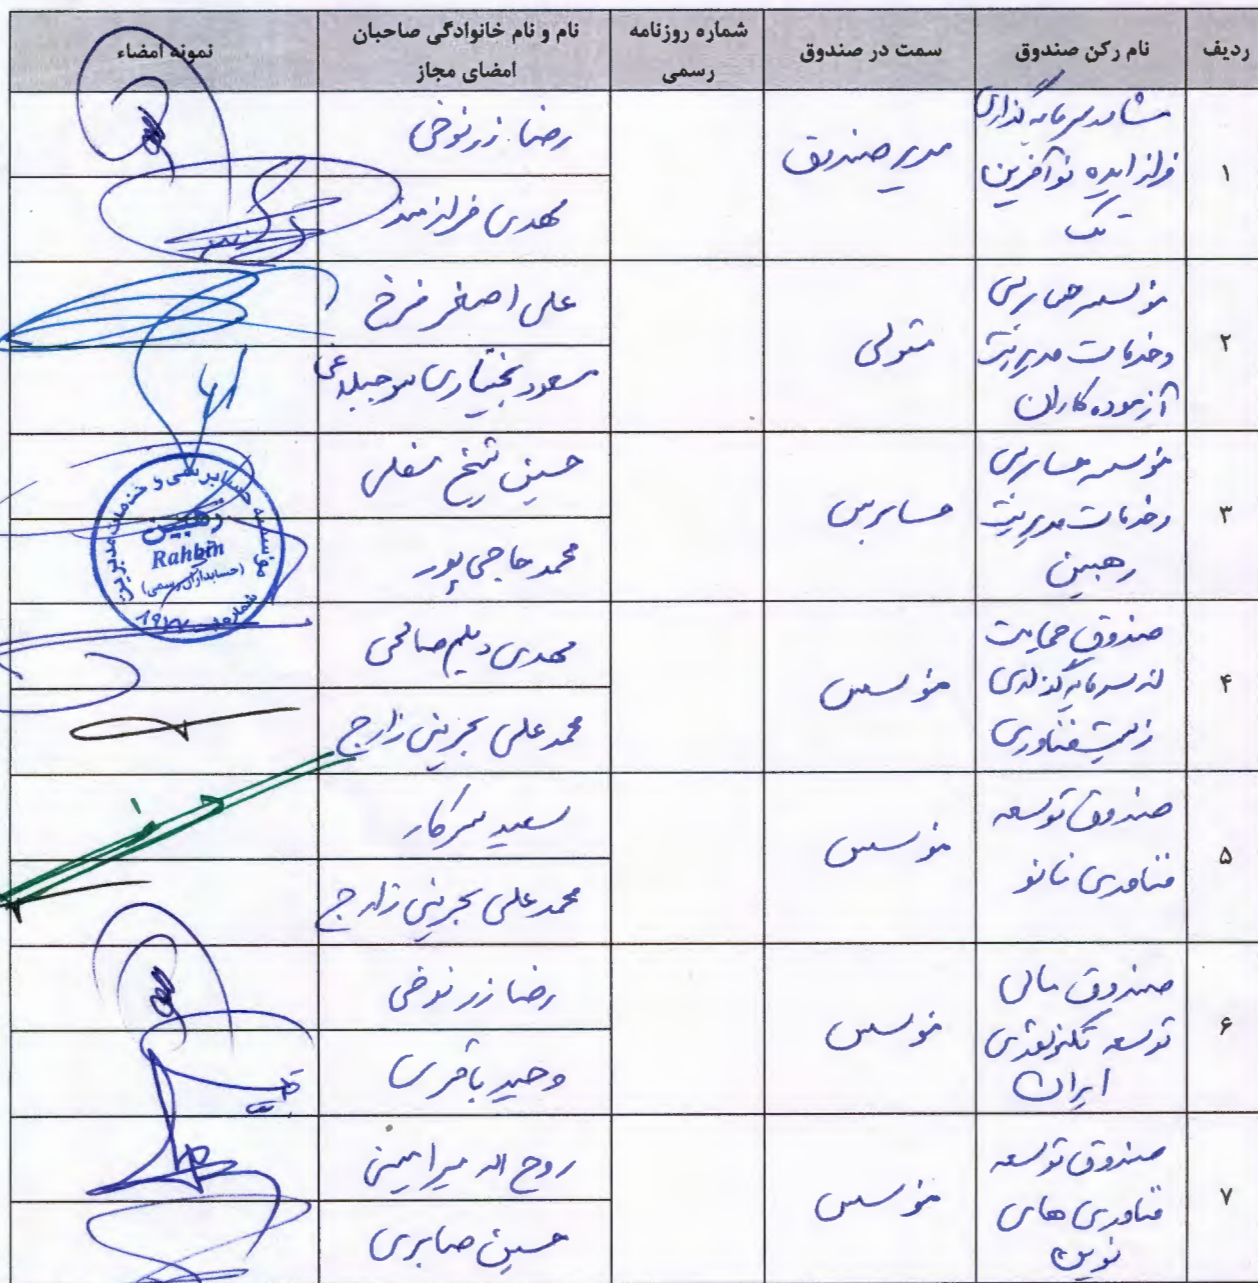 ردیف
نام رکن صندوق
سمت در صندوق
شماره روزنامه
رسمی
نام و نام خانوادگی صاحبان
امضای مجاز
نمونه امضاء
۱
سرمایه گذاری
فراز ایده نوآفرین
تک
مدیر صندوق
رضا زرنوخی
مهدی فرازمند
۲
موسسه حسابرسی
وخدمات مدیریت
آزموده کاران
متولی
علی اصغر فرخ
مسعود بختیاری سوجبلاغی
۳
موسسه حسابرسی
وخدمات مدیریت
رهبین
حسابرس
حسین شیخ سفلی
محمد حاجی پور
موسسه حسابرسی و خدمات مدیریت
رهبین
Rahbin
(حسابداران رسمی)
۴
صندوق حمایت
از سرمایه گذاری
زیست فناوری
موسس
مهدی دیلم صالحی
محمد علی بحرینی زارج
۵
صندوق توسعه
فناوری نانو
موسس
سعید سرکار
محمد علی بحرینی زارج
۶
صندوق مالی
توسعه تکنولوژی
ایران
موسس
رضا زرنوخی
وحید باقری
۷
صندوق توسعه
فناوری های
نوین
موسس
روح اله میرامینی
حسین صابری